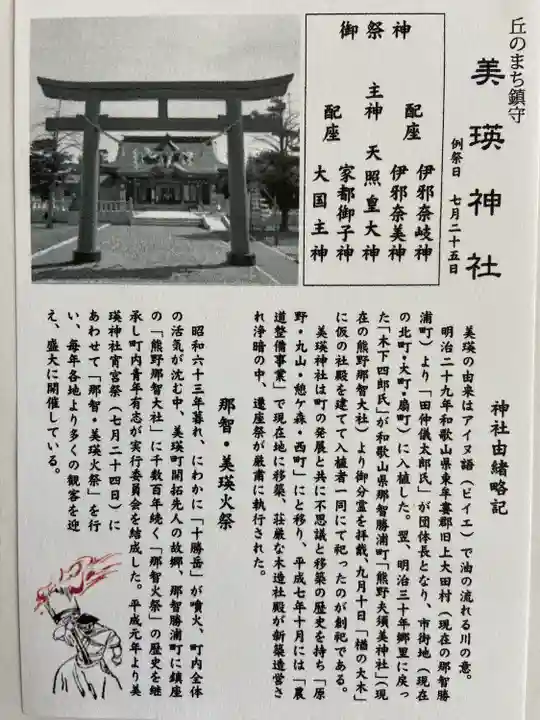 丘のまち鎮守
美瑛神社
例祭日 七月二十五日
御祭神
配座 伊邪奈岐神
伊邪奈美神
主神 天照皇大神
配座 家都御子神
大国主神
神社由緒略記
美瑛の由来はアイヌ語（ピイエ）で油の流れる川の意。
明治二十九年和歌山県東牟婁郡旧上大田村（現在の那智勝
浦町）より「田仲儀太郎氏」が団体長となり、市街地（現在
の北町・大町・扇町）に入植した。翌、明治三十年郷里に戻っ
た「木下四郎氏」が和歌山県那智勝浦町「熊野夫須美神社」（現
在の熊野那智大社）より御分霊を拝載、九月十日「楢の大木」
に仮の社殿を建てて入植者一同にて祀ったのが創祀である。
美瑛神社は町の発展と共に不思議と移築の歴史を持ち「原
野・丸山・憩ケ森・西町」にと移り、平成七年十月には「農
道整備事業」で現在地に移築、荘厳な木造社殿が新築造営さ
れ浄暗の中、遷座祭が厳粛に執行された。
那智・美瑛火祭
昭和六十三年暮れ、にわかに「十勝岳」が噴火、町内全体
の活気が沈む中、美瑛町開拓先人の故郷、那智勝浦町に鎮座
の「熊野那智大社」に千数百年続く「那智火祭」の歴史を継
承し町内青年有志が実行委員会を結成した。平成元年より美
瑛神社宵宮祭（七月二十四日）に
あわせて「那智・美瑛火祭」を行
い、毎年各地より多くの観客を迎
え、盛大に開催している。